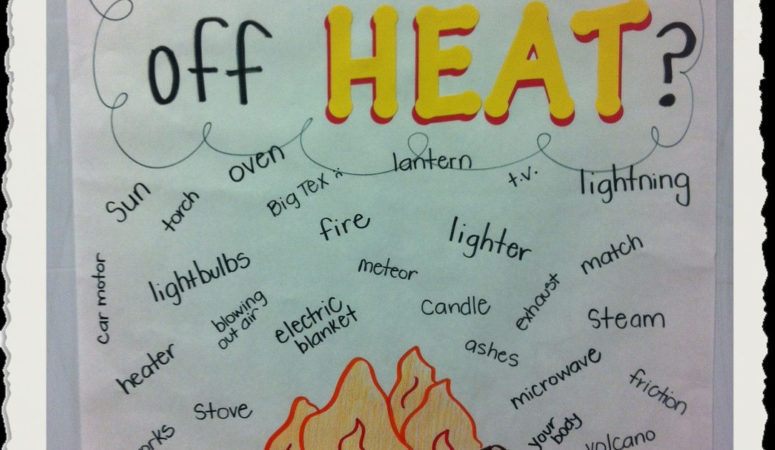 off HEAT?
oven
lantern
Sun
torch
Big Tex
t.v.
lightning
fire
lighter
match
car motor
lightbulbs
meteor
blowing
out air
electric
blanket
candle
exhaust
Steam
heater
ashes
microwave
friction
Stove
your
body
volcano